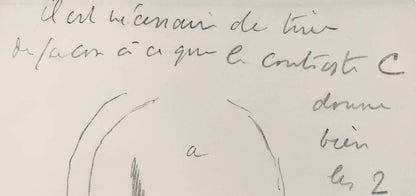 il est nécessaire de tirer
de façon à ce que le contraste C
donne
bien
les 2
a